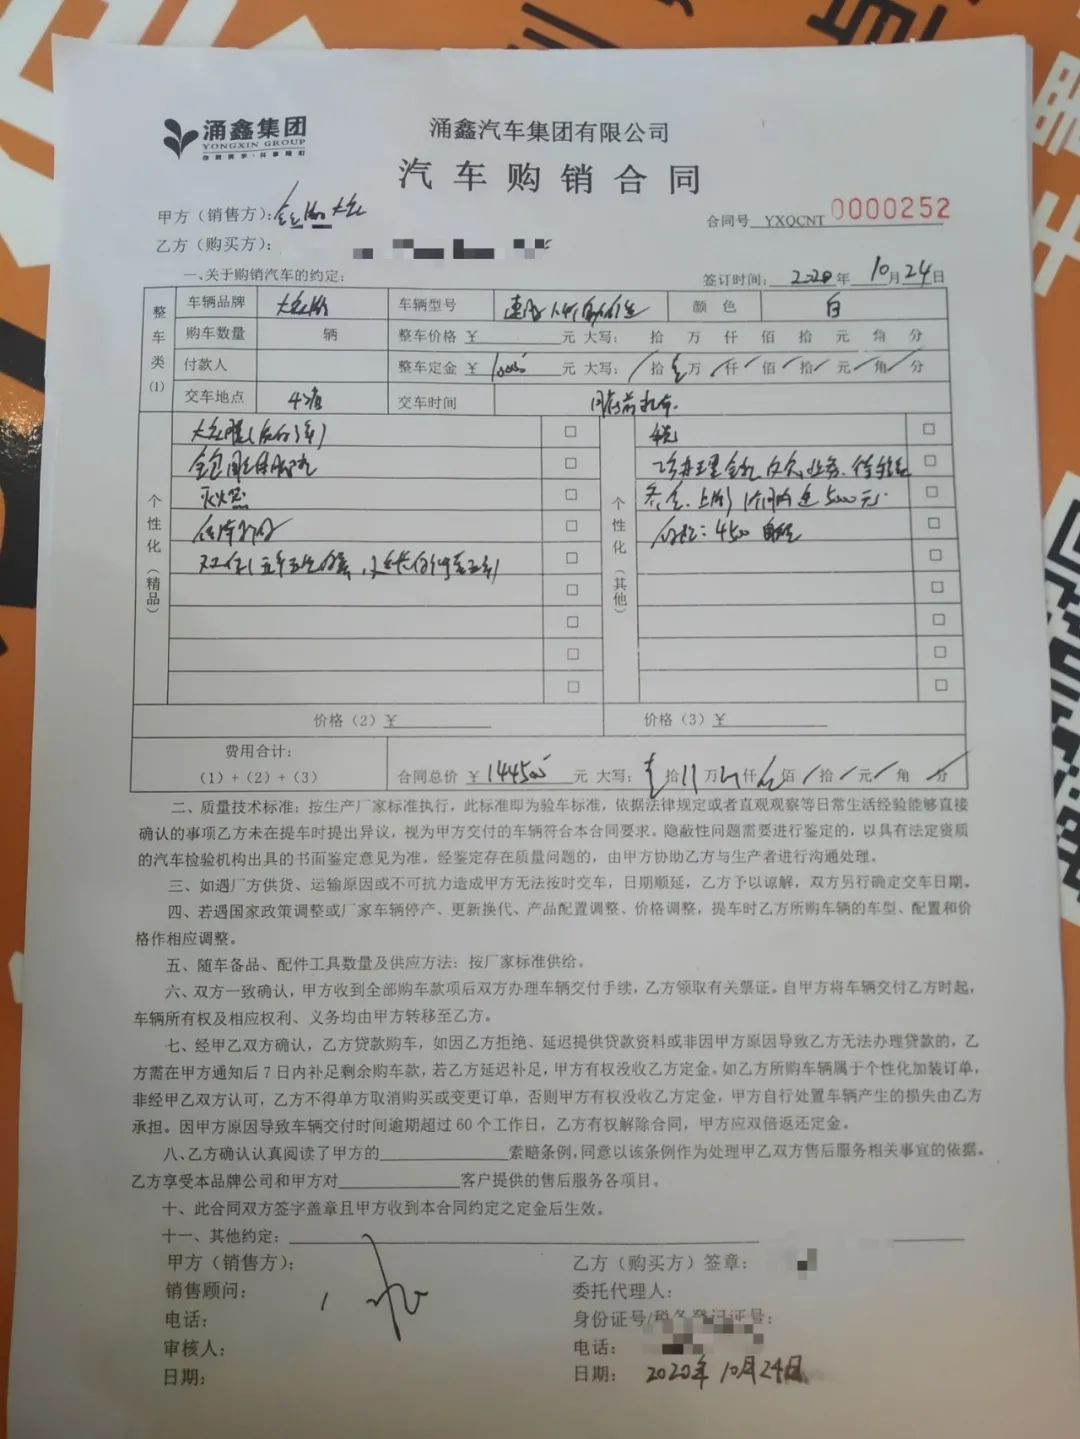 涌鑫集团
YONGXIN GROUP
涌鑫汽车集团有限公司
汽车购销合同
甲方（销售方）：
合同号 YXQCNT 0000252
乙方（购买方）：
一、关于购销汽车的约定：
签订时间： 2020 年 10 月 24 日
整车类(1)
车辆品牌 车辆型号 颜色 白
购车数量 辆 整车价格 ￥ 元 大写： 拾 万 仟 佰 拾 元 角 分
付款人 整车定金 ￥ 元 大写： / 拾 壹 万 / 仟 / 佰 / 拾 / 元 / 角 / 分
交车地点 4S店 交车时间
个性化（精品） □ 个性化（其他） □
□ □
灭火器 □ □
□ □
□ □
□ □
□ □
□ □
□ □
价格（2）￥ 价格（3）￥
费用合计：
（1）+（2）+（3）
合同总价 ￥ 元 大写： 拾 万 仟 佰 / 拾 / 元 / 角 / 分
二、质量技术标准：按生产厂家标准执行，此标准即为验车标准，依据法律规定或者直观观察等日常生活经验能够直接
确认的事项乙方未在提车时提出异议，视为甲方交付的车辆符合本合同要求。隐蔽性问题需要进行鉴定的，以具有法定资质
的汽车检验机构出具的书面鉴定意见为准。经鉴定存在质量问题的，由甲方协助乙方与生产者进行沟通处理。
三、如遇厂方供货、运输原因或不可抗力造成甲方无法按时交车，日期顺延，乙方予以谅解，双方另行确定交车日期。
四、若遇国家政策调整或厂家车辆停产、更新换代、产品配置调整、价格调整，提车时乙方所购车辆的车型、配置和价
格作相应调整。
五、随车备品、配件工具数量及供应方法：按厂家标准供给。
六、双方一致确认，甲方收到全部购车款项后双方办理车辆交付手续，乙方领取有关票证。自甲方将车辆交付乙方时起，
车辆所有权及相应权利、义务均由甲方转移至乙方。
七、经甲乙双方确认，乙方贷款购车，如因乙方拒绝、延迟提供贷款资料或非因甲方原因导致乙方无法办理贷款的，乙
方需在甲方通知后7日内补足剩余购车款，若乙方延迟补足，甲方有权没收乙方定金。如乙方所购车辆属于个性化加装订单，
非经甲乙双方认可，乙方不得单方取消购买或变更订单，否则甲方有权没收乙方定金，甲方自行处置车辆产生的损失由乙方
承担。因甲方原因导致车辆交付时间逾期超过60个工作日，乙方有权解除合同，甲方应双倍返还定金。
八、乙方确认认真阅读了甲方的 索赔条例，同意以该条例作为处理甲乙双方售后服务相关事宜的依据。
乙方享受本品牌公司和甲方对 客户提供的售后服务各项目。
十、此合同双方签字盖章且甲方收到本合同约定之定金后生效。
十一、其他约定：
甲方（销售方）： 乙方（购买方）签章：
销售顾问： 委托代理人：
电话： 身份证号/税务登记证号：
审核人： 电话：
日期： 日期： 2020年10月24日